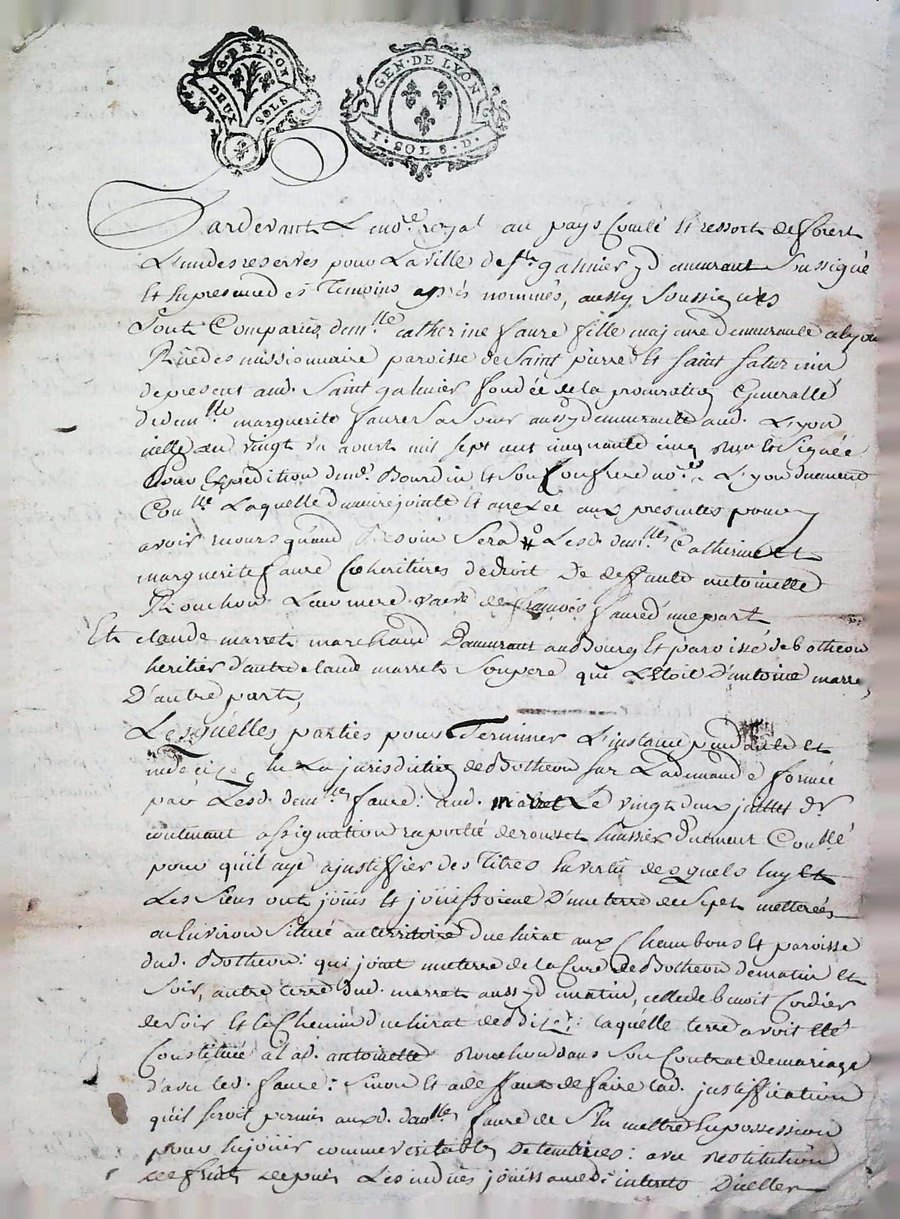 G. DE LYON
DEUX SOLS
GEN. DE LYON
I. SOL 8. D.
Pardevant Le no.re royal au pays Comté et ressort de forest
L'un des reservés pour La ville de St galmier y demeurant Soussigné
Et En presence des Temoins après nommés, aussy Soussignés
Sont Comparües dem.lle Catherine faure fille majeure demeurante a Lyon
Rüe des missionnaire paroisse de Saint pierre et Saint Saturnin
de present aud. Saint galmier fondée de la procuration Generalle
de dem.lle marguerite faure Sa Soeur aussy demeurante aud. Lyon
icelle du vingt un aoust mil sept cent cinquante cinq et Signée
Pour Expedition dem.e Bourdin et Son Confrere no.res a Lyon duement
Con.llé Laquelle demeure jointe et anexée aux presentes pour y
avoir recours quand Besoin Sera Lesd. dem.lles Catherine Et
marguerite faure Coheritieres de droit De deffunte antoinette
Thouchon Leur mere veuve de françois faure d'une part
Et claude marret marchand Demeurant au Bourg et paroisse de botheon
heritier d'autre claude marret Son pere qui L'étoit d'antoine marret,
D'autre part,
Lesquelles parties pour Terminer L'instance pendante et
indecize En La jurisdiction de Botheon sur La demande formée
par Lesd. dem.lles faure: aud. marret Le vingt deux juillet d.r
contenant assignation raportée de rousset huissier duement Con.llé
pour qu'il aye a justiffier des Titres En vertu desquels luy et
Les Siens ont joüis et joüissoient D'une terre de Sept metterées
ou Environ Située au territoire du chirat aux Chambons et paroisse
dud. Botheon: qui joint une terre de la Cure de Botheon de matin et
Soir, autre terre dud. marret aussy de matin, celle de benoit Cordier
de soir et le Chemin du chirat de laquelle terre avoit Eté
Constituée a lad. antoinette Thouchon dans Son Contrat de mariage
d'avec led. faure: Sinon et a deffaut de faire lad. justiffication
qu'il seroit permis auxd. dem.lles faure de S'en mettre En possession
pour En joüir comme veritables Detentrices: avec restitution
de fruits depuis Les indües joüissances: D'icelle